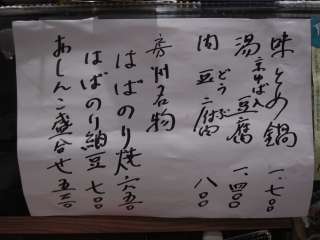 味とめ鍋 一.七〇〇
京ゆば入
湯豆腐 一.四〇〇
肉豆腐 八〇〇
どうふ
房州名物
はばのり焼 六五〇
はばのり納豆 七〇〇
おしんこ盛合せ 五五〇